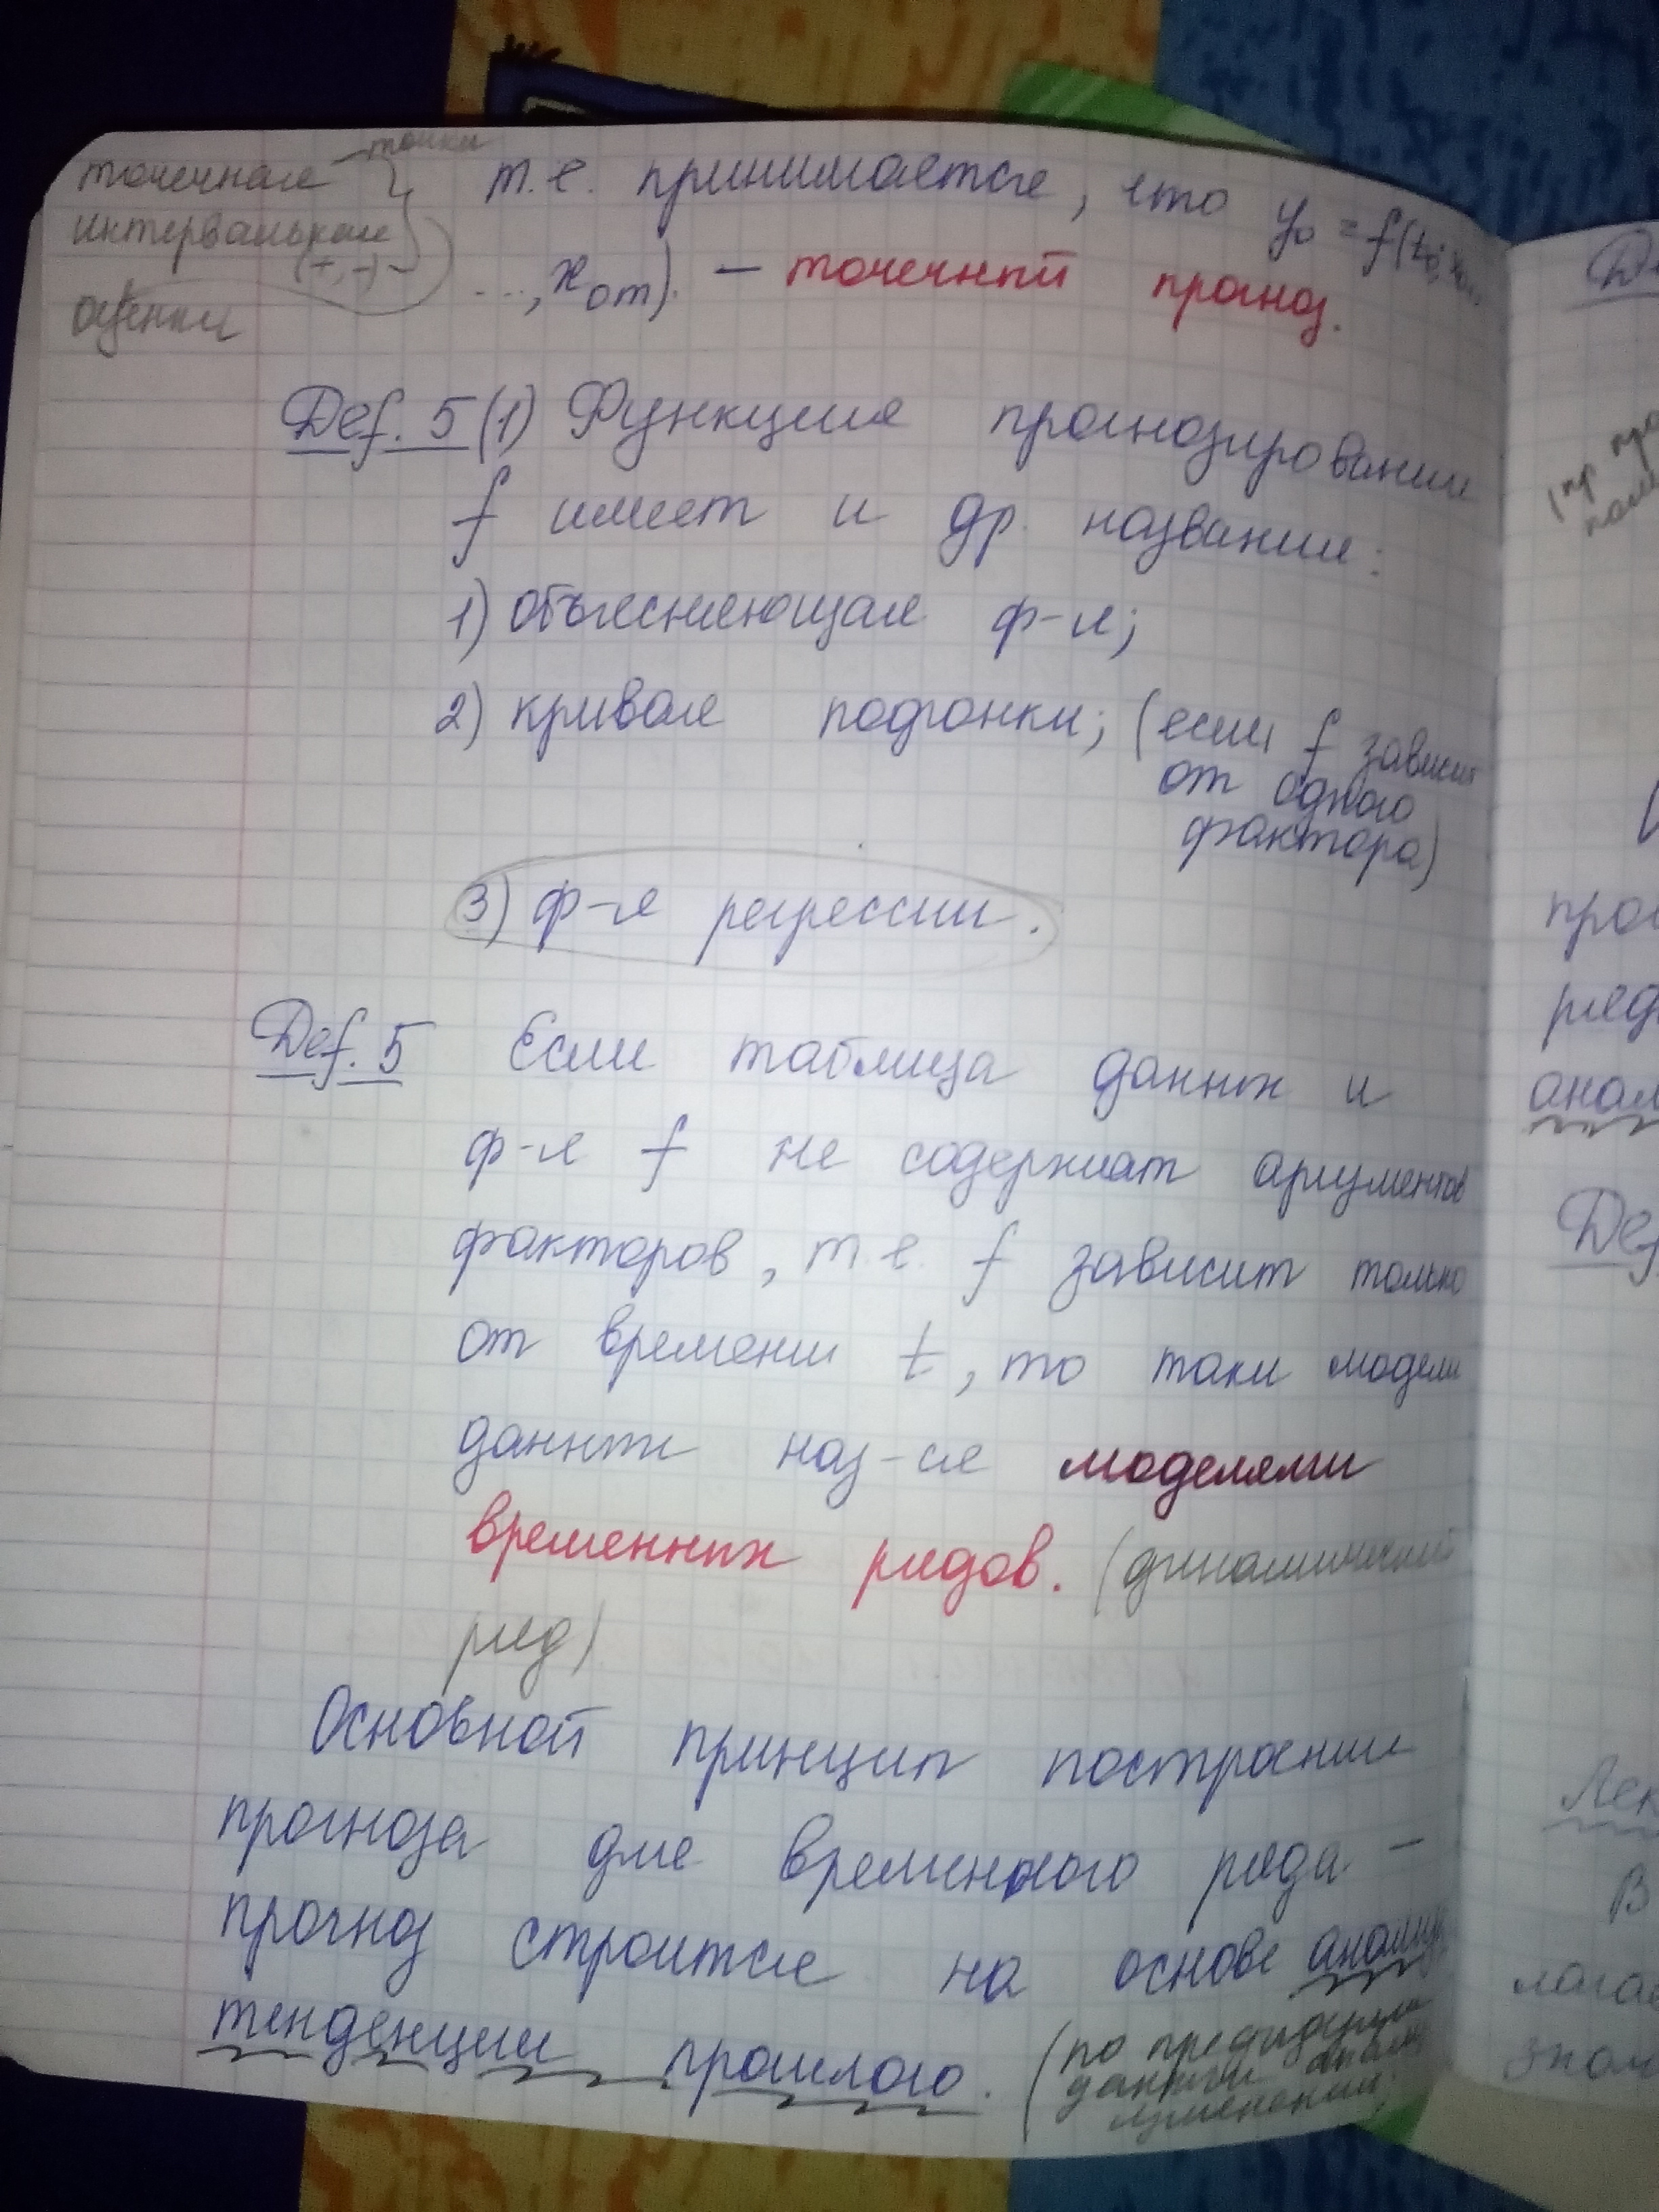 точечная точки
интервальная
(+,-)
оценки
т.е. принимается, что y₀ = f(t₀; x₀₁,
..., x₀m). — точечный прогноз.
Def. 5(1) Функция прогнозирования
f имеет и др. названия:
1) объясняющая ф-я;
2) кривая подгонки; (если f зависит
от одного
фактора)
3) ф-я регрессии.
Def. 5 Если таблица данных и
ф-я f не содержат аргументов
факторов, т.е. f зависит только
от времени t, то таки модели
данных наз-ся моделями
временных рядов. (динамический
ряд)
Основной принцип построения
прогноза для временного ряда —
прогноз строится на основе анализа
тенденции прошлого. (по предыдущим
данным
изменения)
De
(пр
про
ряд
анал
Def
Лек
В
лагае
знач